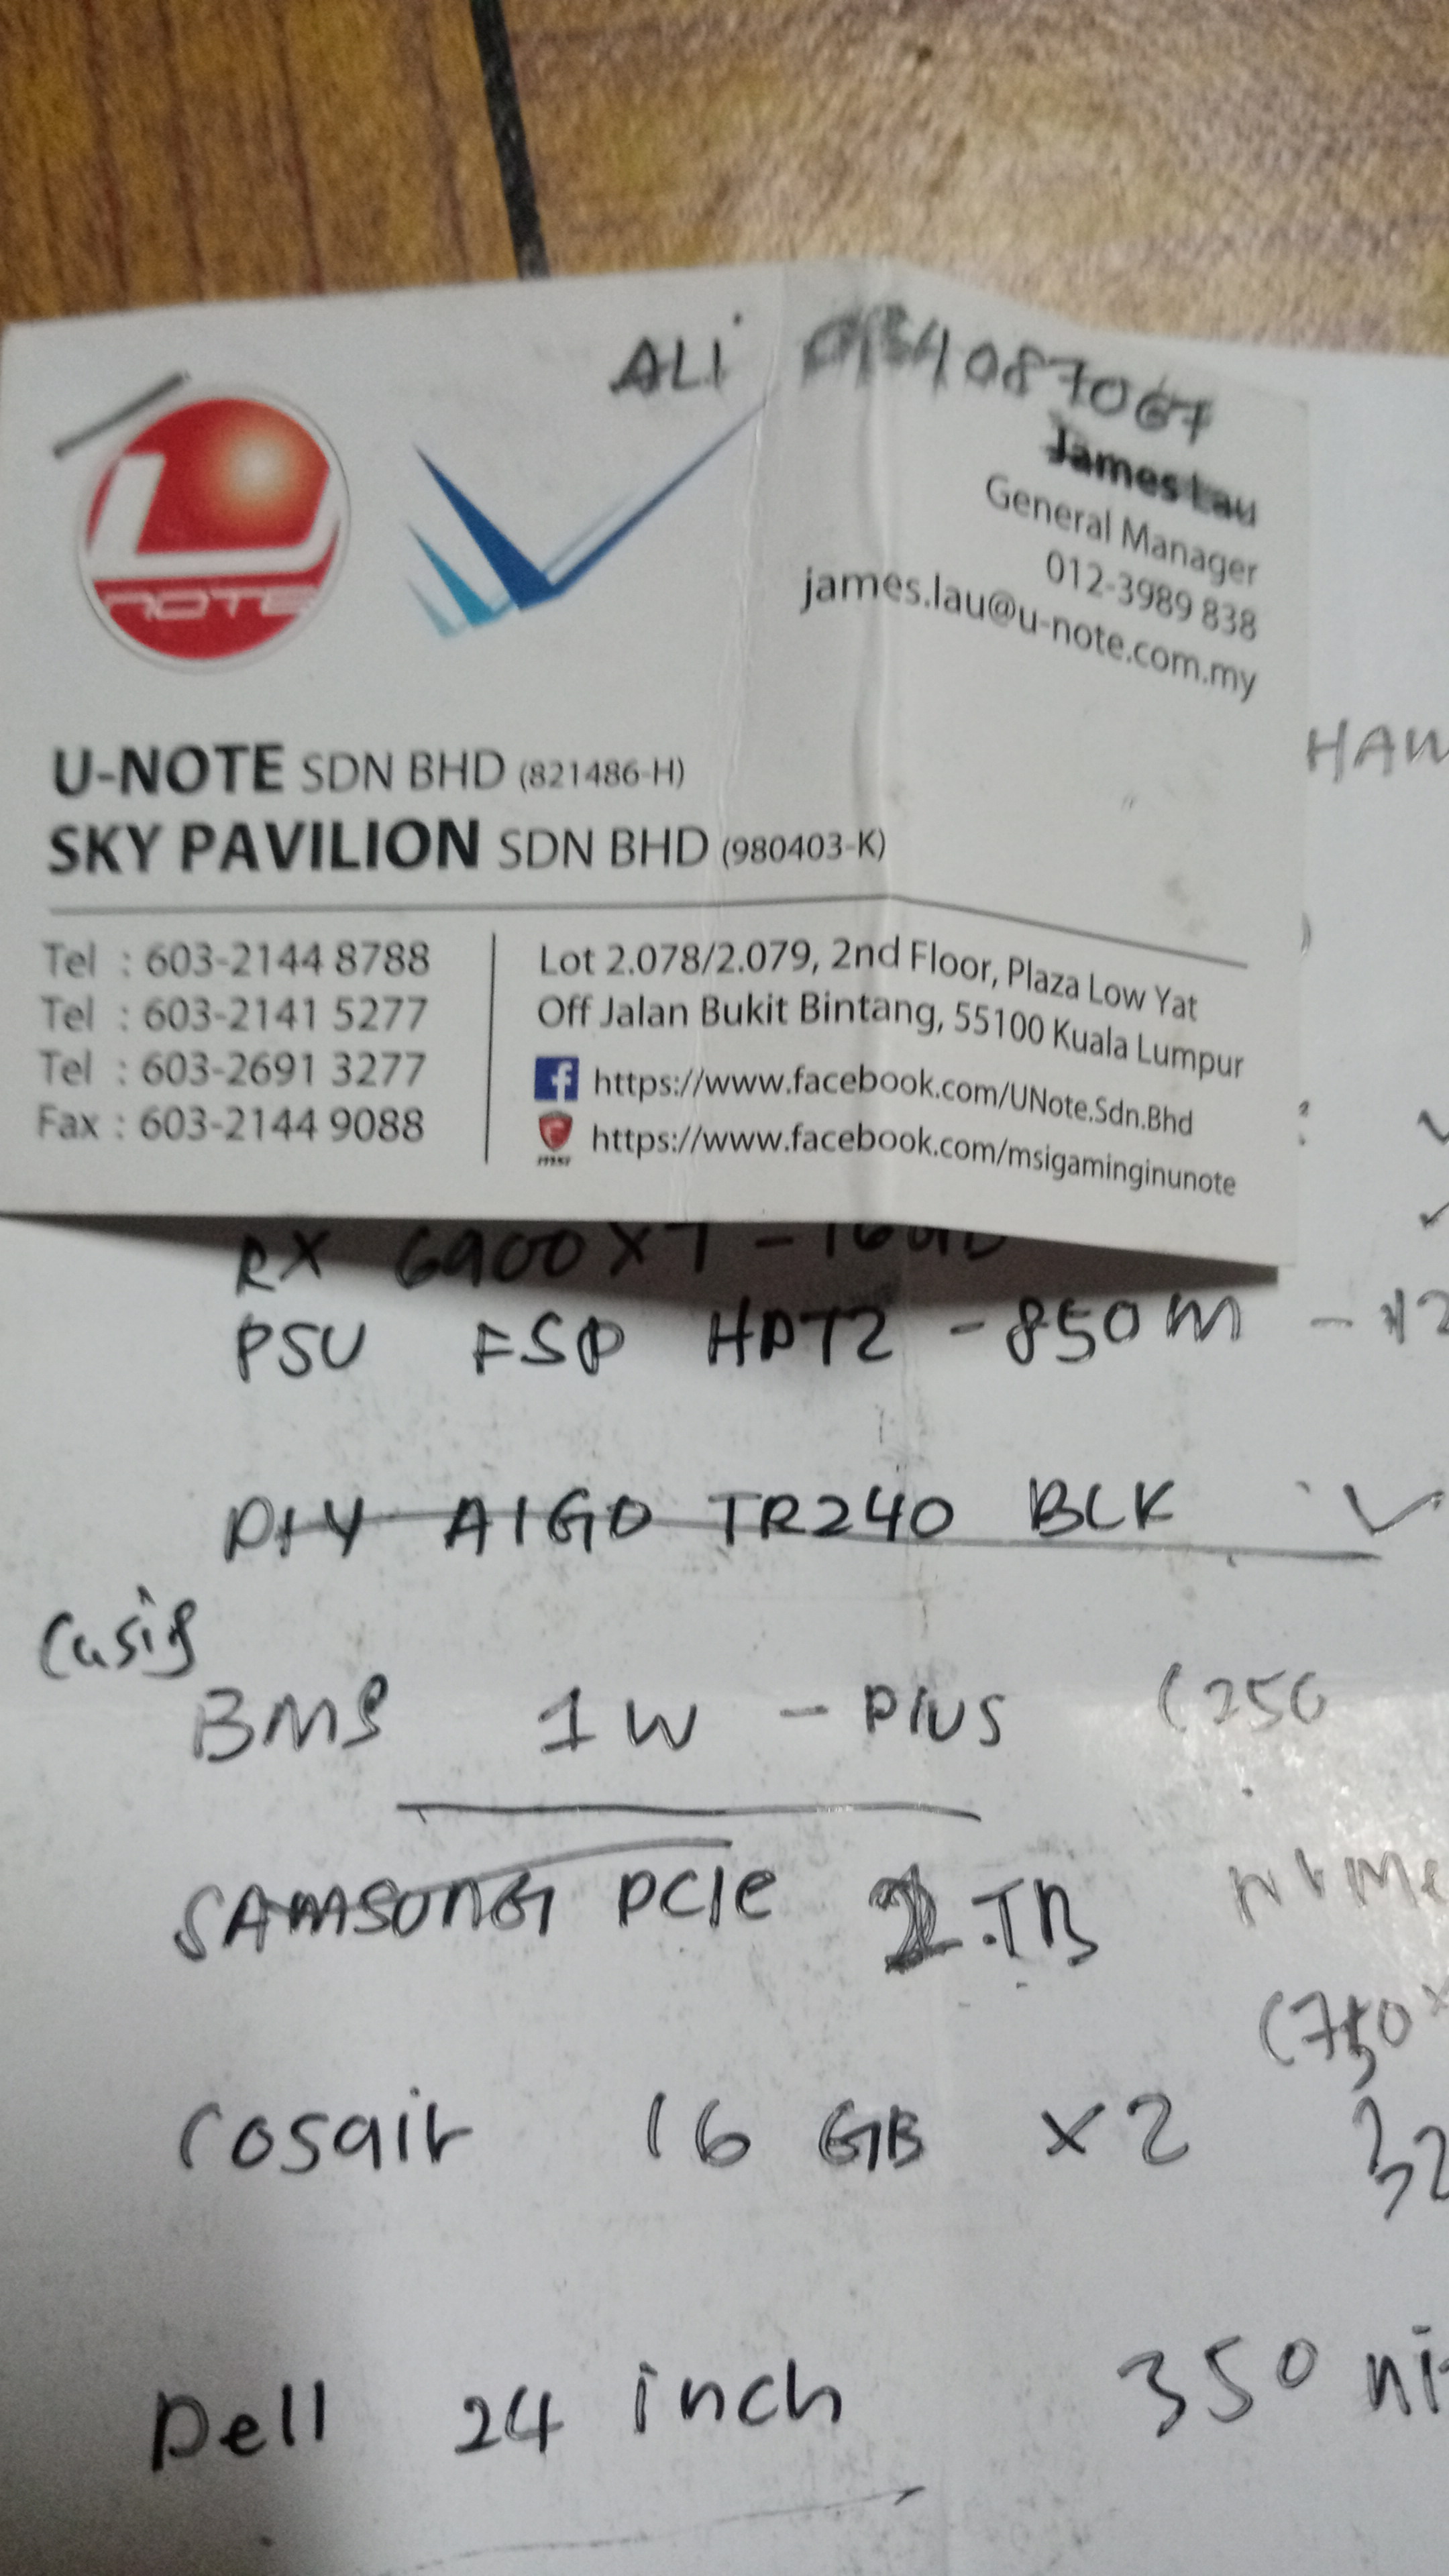 ALi
James Lau
General Manager
012-3989 838
james.lau@u-note.com.my
U NOTE
U-NOTE SDN BHD (821486-H)
SKY PAVILION SDN BHD (980403-K)
Tel : 603-2144 8788
Tel : 603-2141 5277
Tel : 603-2691 3277
Fax : 603-2144 9088
Lot 2.078/2.079, 2nd Floor, Plaza Low Yat
Off Jalan Bukit Bintang, 55100 Kuala Lumpur
https://www.facebook.com/UNote.Sdn.Bhd
https://www.facebook.com/msigaminginunote
HAW
RX 6900XT - 16GB
PSU FSP HPT2 - 850M
AIGO TR240 BLK
BMS 1W - PlUS (250
SAMSUNG PCIe 2TB NVMe
(750
Cosair 16 GB x2 32
Dell 24 inch 350 ni